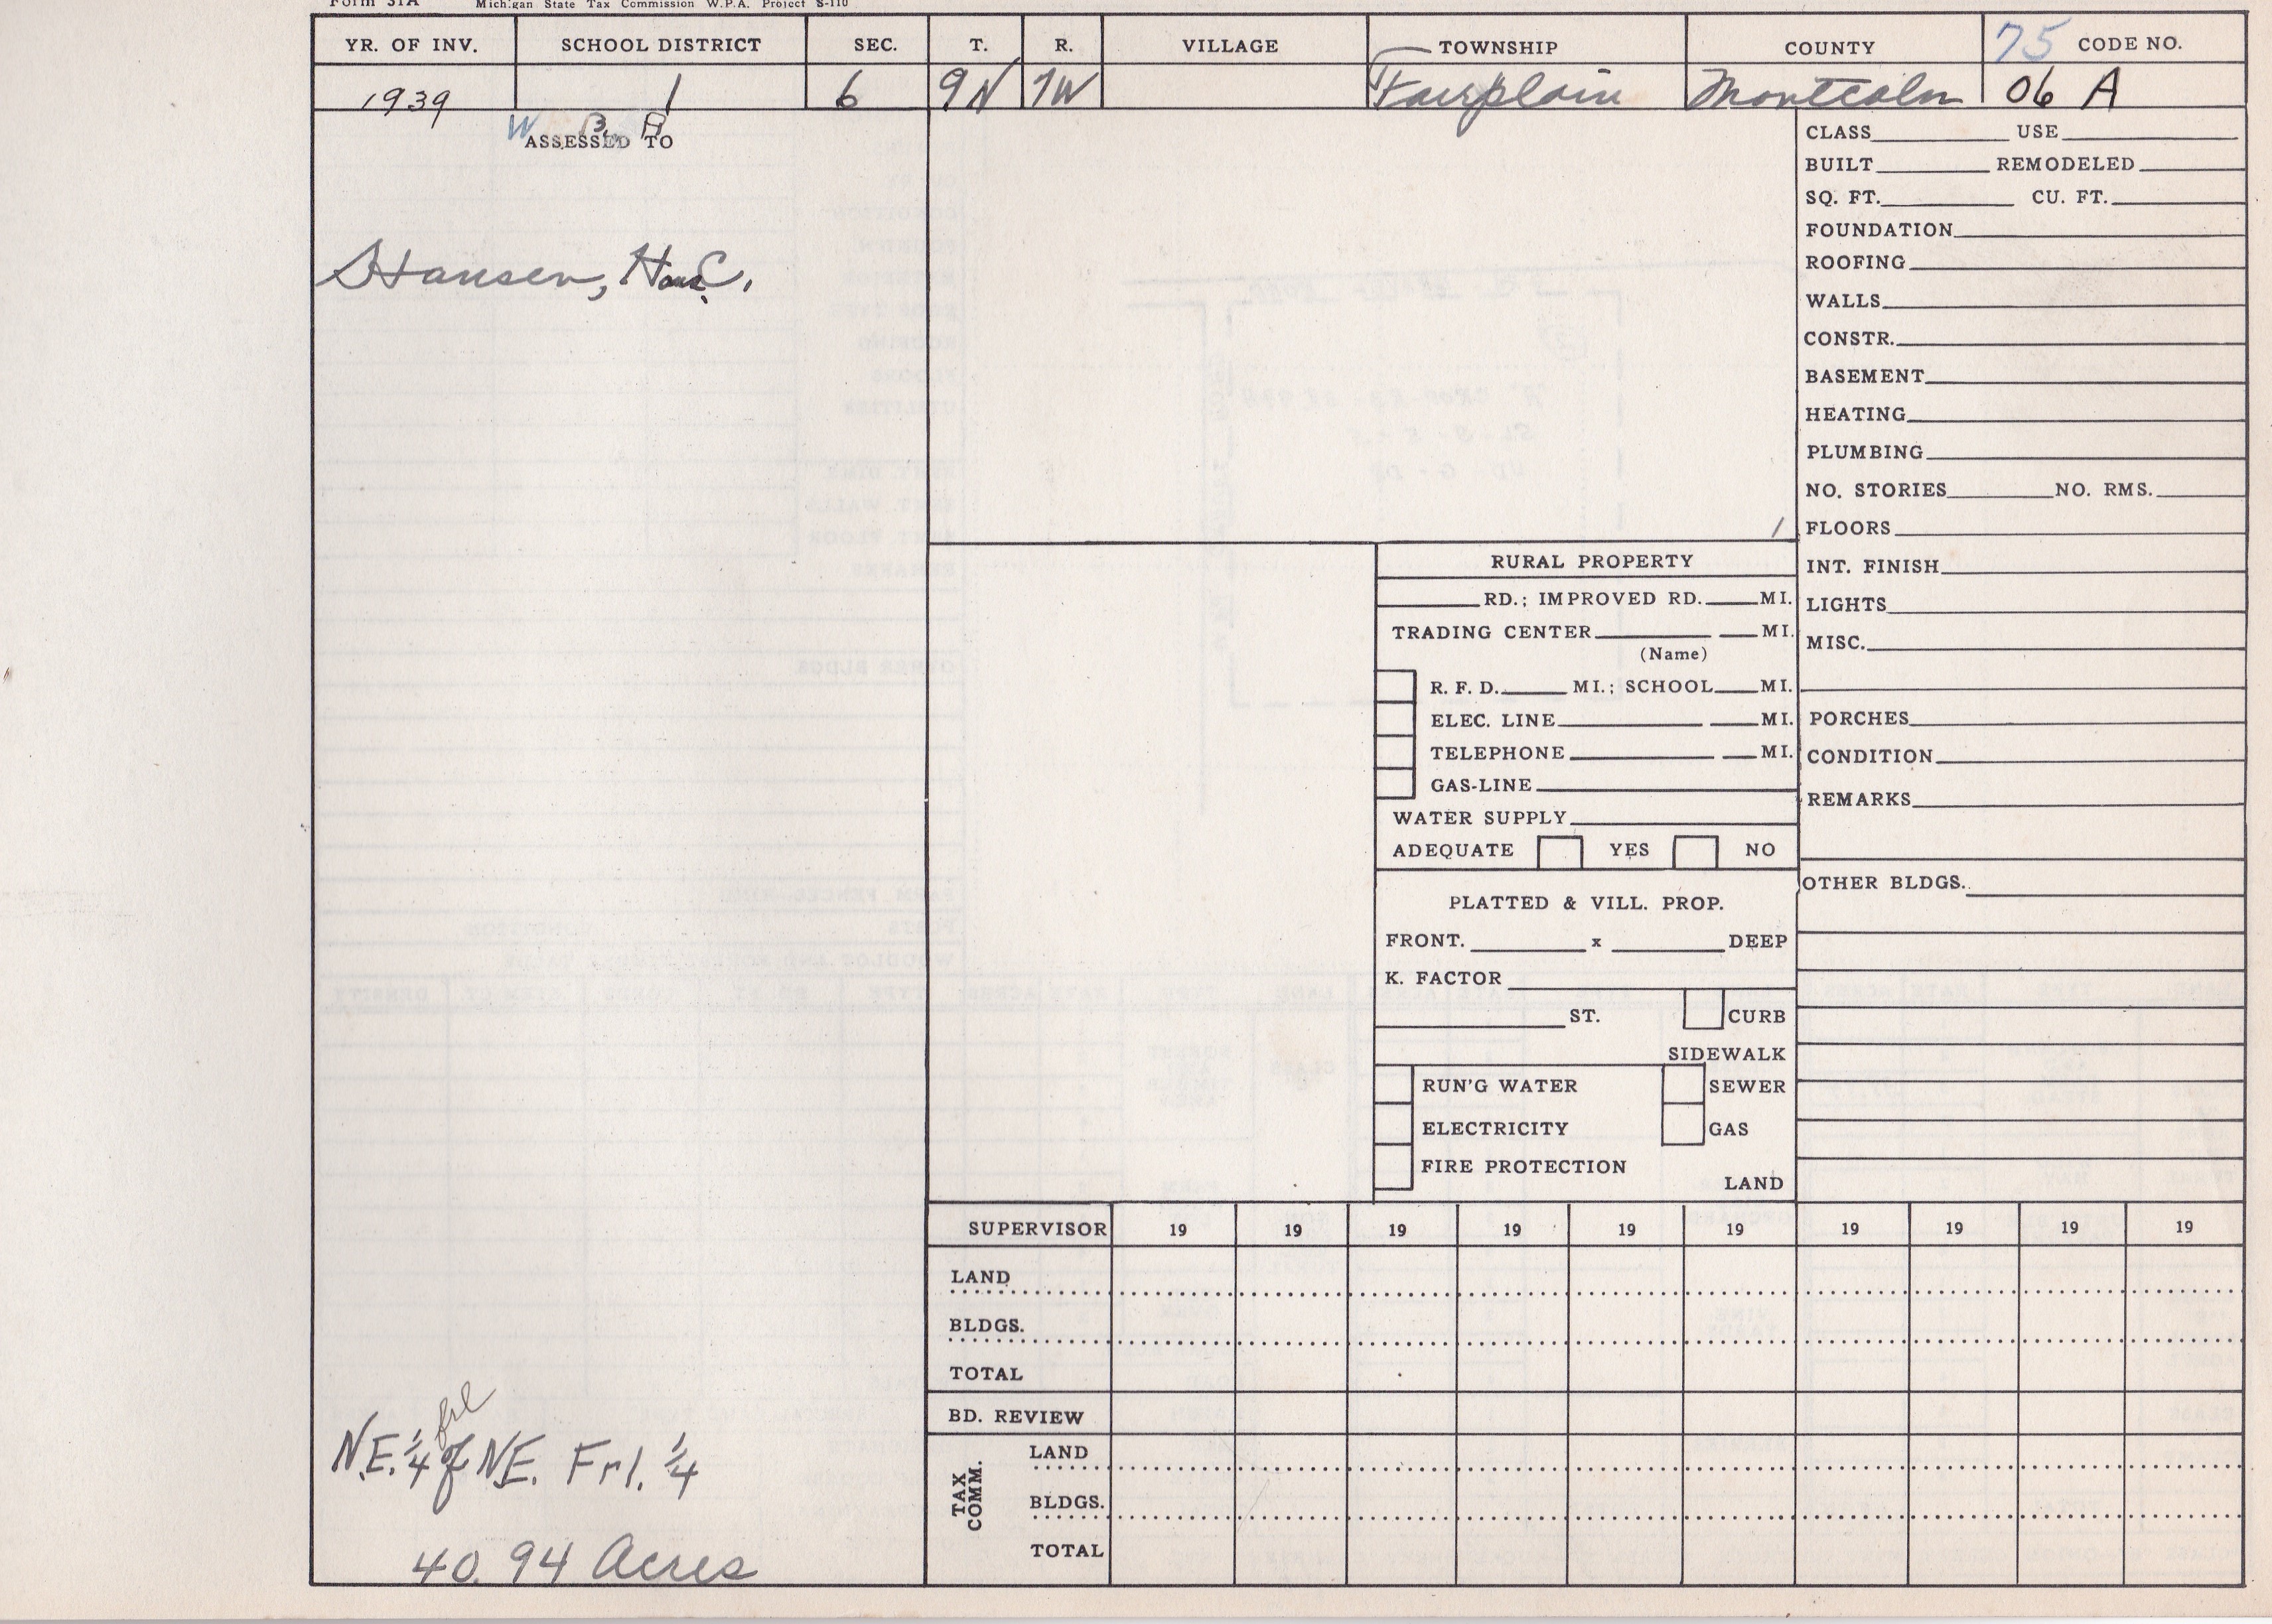 Form 31A Michigan State Tax Commission W.P.A. Project S-110
YR. OF INV. SCHOOL DISTRICT SEC. T. R. VILLAGE TOWNSHIP COUNTY 75 CODE NO.
1939 1 6 9N 7W Fairplain Montcalm 06 A
W B. A
ASSESSED TO
Hansen, Hans C.
NE. 1/4 frl of NE. Frl. 1/4
40.94 Acres
CLASS USE
BUILT REMODELED
SQ. FT. CU. FT.
FOUNDATION
ROOFING
WALLS
CONSTR.
BASEMENT
HEATING
PLUMBING
NO. STORIES NO. RMS.
FLOORS
INT. FINISH
LIGHTS
MISC.
PORCHES
CONDITION
REMARKS
OTHER BLDGS.
RURAL PROPERTY
RD.; IMPROVED RD. MI.
TRADING CENTER MI.
(Name)
R. F. D. MI.; SCHOOL MI.
ELEC. LINE MI.
TELEPHONE MI.
GAS-LINE
WATER SUPPLY
ADEQUATE YES NO
PLATTED & VILL. PROP.
FRONT. x DEEP
K. FACTOR
ST. CURB
SIDEWALK
RUN'G WATER SEWER
ELECTRICITY GAS
FIRE PROTECTION
LAND
SUPERVISOR 19 19 19 19 19 19 19 19 19 19
LAND
BLDGS.
TOTAL
BD. REVIEW
TAX COMM.
LAND
BLDGS.
TOTAL